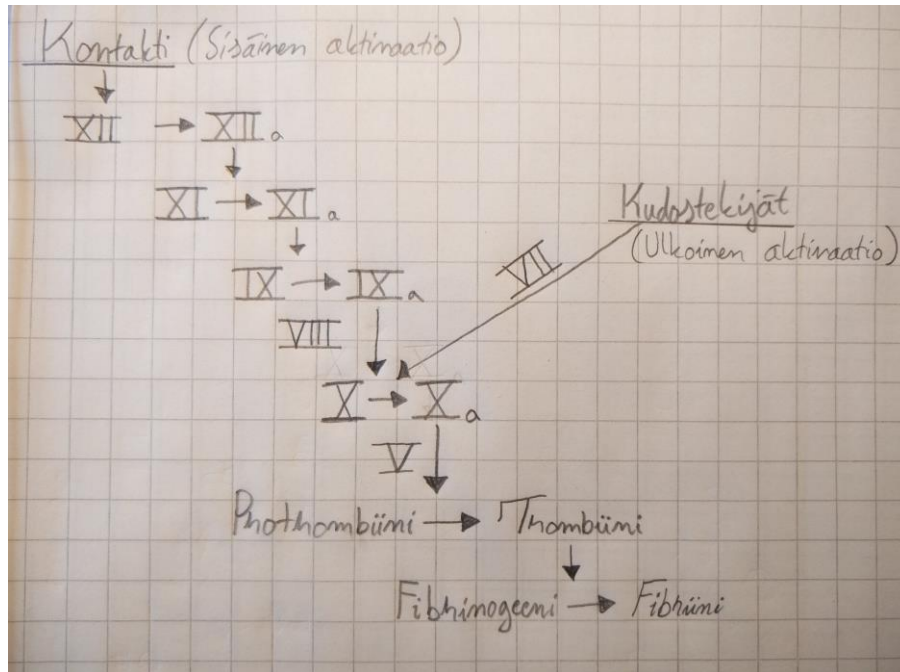 Kontakti (Sisäinen aktivaatio)
XII → XIIa
XI → XIa
Kudostekijät
(Ulkoinen aktivaatio)
VII
IX → IXa
VIII
X → Xa
V
Prothrombiini → Thrombiini
Fibrinogeeni → Fibriini